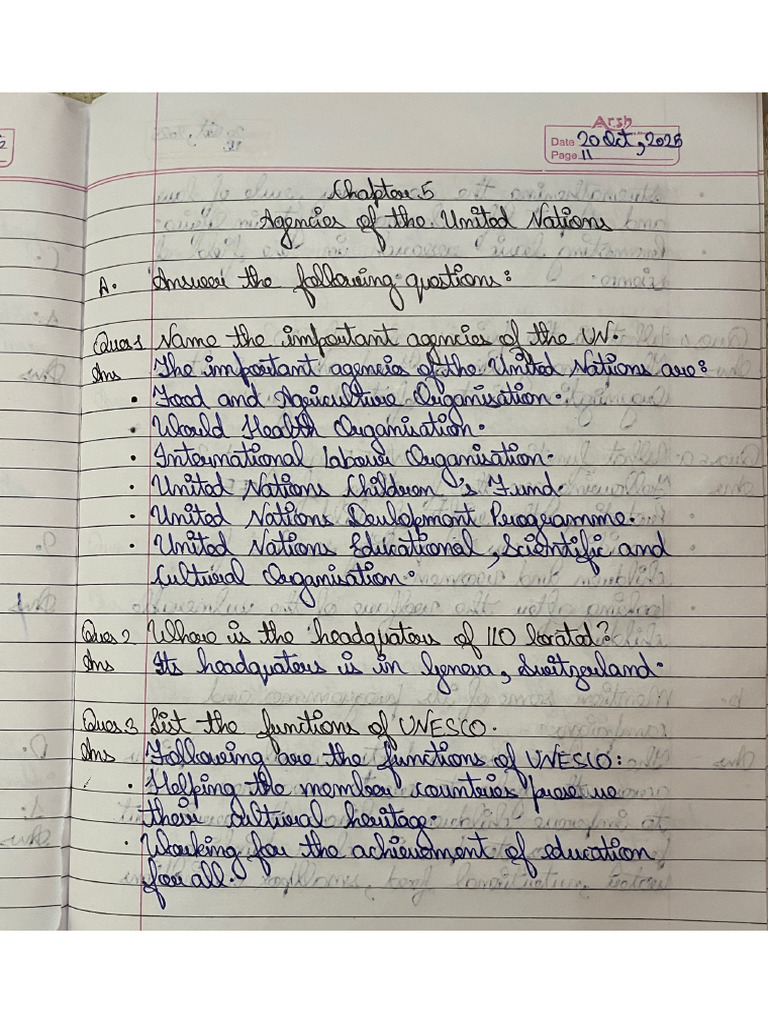 Arsh
Date 20 Oct, 2025
Page 11
Chapter 5
Agencies of the United Nations
A. Answer the following questions:
Ques 1 Name the important agencies of the UN.
Ans The important agencies of the United Nations are:
• Food and Agriculture Organisation.
• World Health Organisation.
• International Labour Organisation.
• United Nations Children's Fund.
• United Nations Devlopment Programme.
• United Nations Educational, Scientific and
Cultural Organisation.
Ques 2 Where is the headquaters of ILO located?
Ans Its headquaters is in Geneva, Switzerland.
Ques 3 List the functions of UNESCO.
Ans Following are the functions of UNESCO:
• Helping the member countries preserve
their cultural heritage.
• Working for the achievement of education
for all.